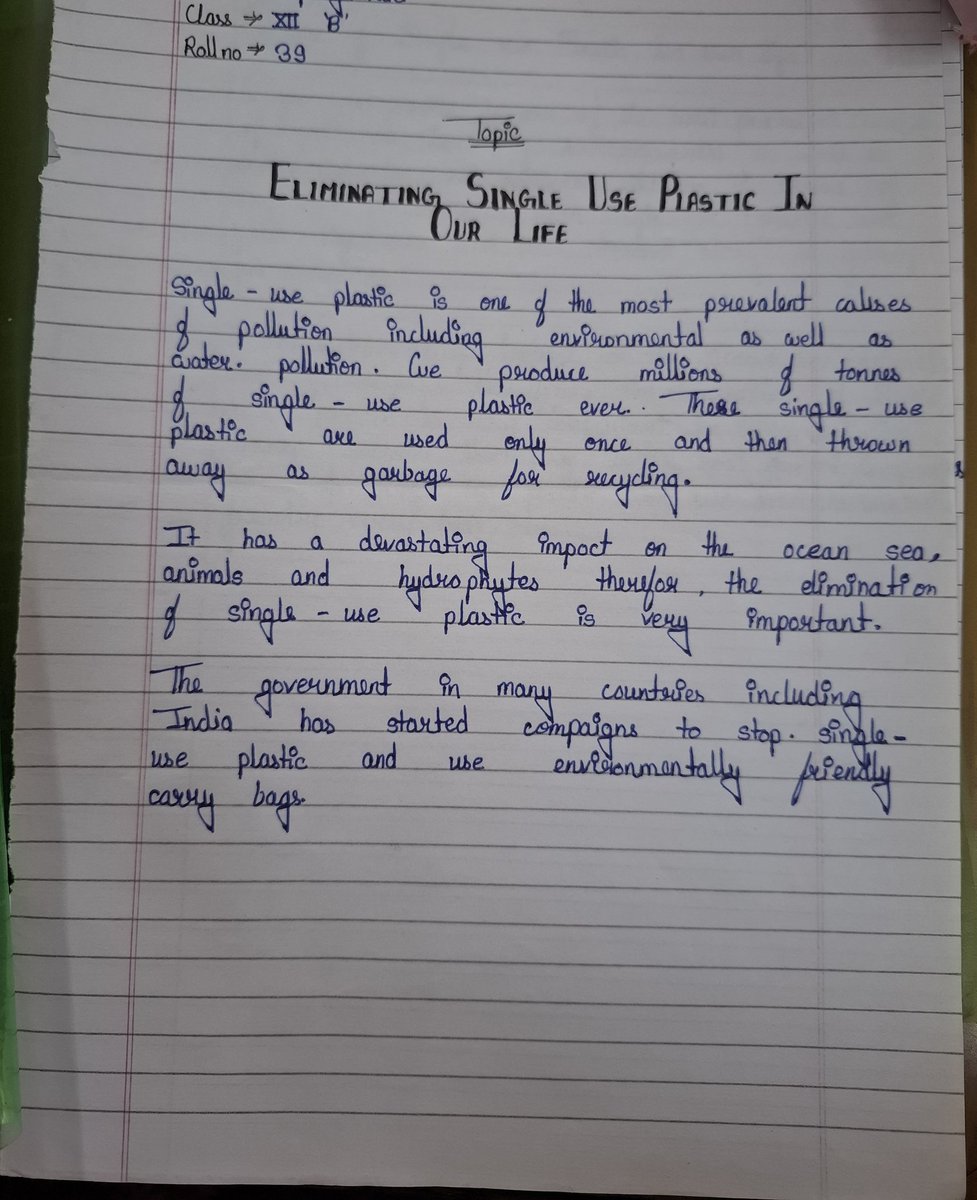 Class → XII 'B'
Roll no → 39
Topic
ELIMINATING SINGLE USE PLASTIC IN
OUR LIFE
Single - use plastic is one of the most prevalent causes
of pollution including environmental as well as
water. pollution. We produce millions of tonnes
of single - use plastic ever. These single - use
plastic are used only once and then thrown
away as garbage for recycling.
It has a devastating impact on the ocean sea,
animals and hydrophytes therefor, the elimination
of single - use plastic is very important.
The government in many countries including
India has started compaigns to stop. single -
use plastic and use environmentally friendly
carry bags.